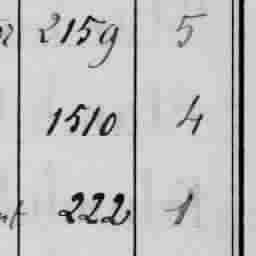 2159 5
1510 4
222 1